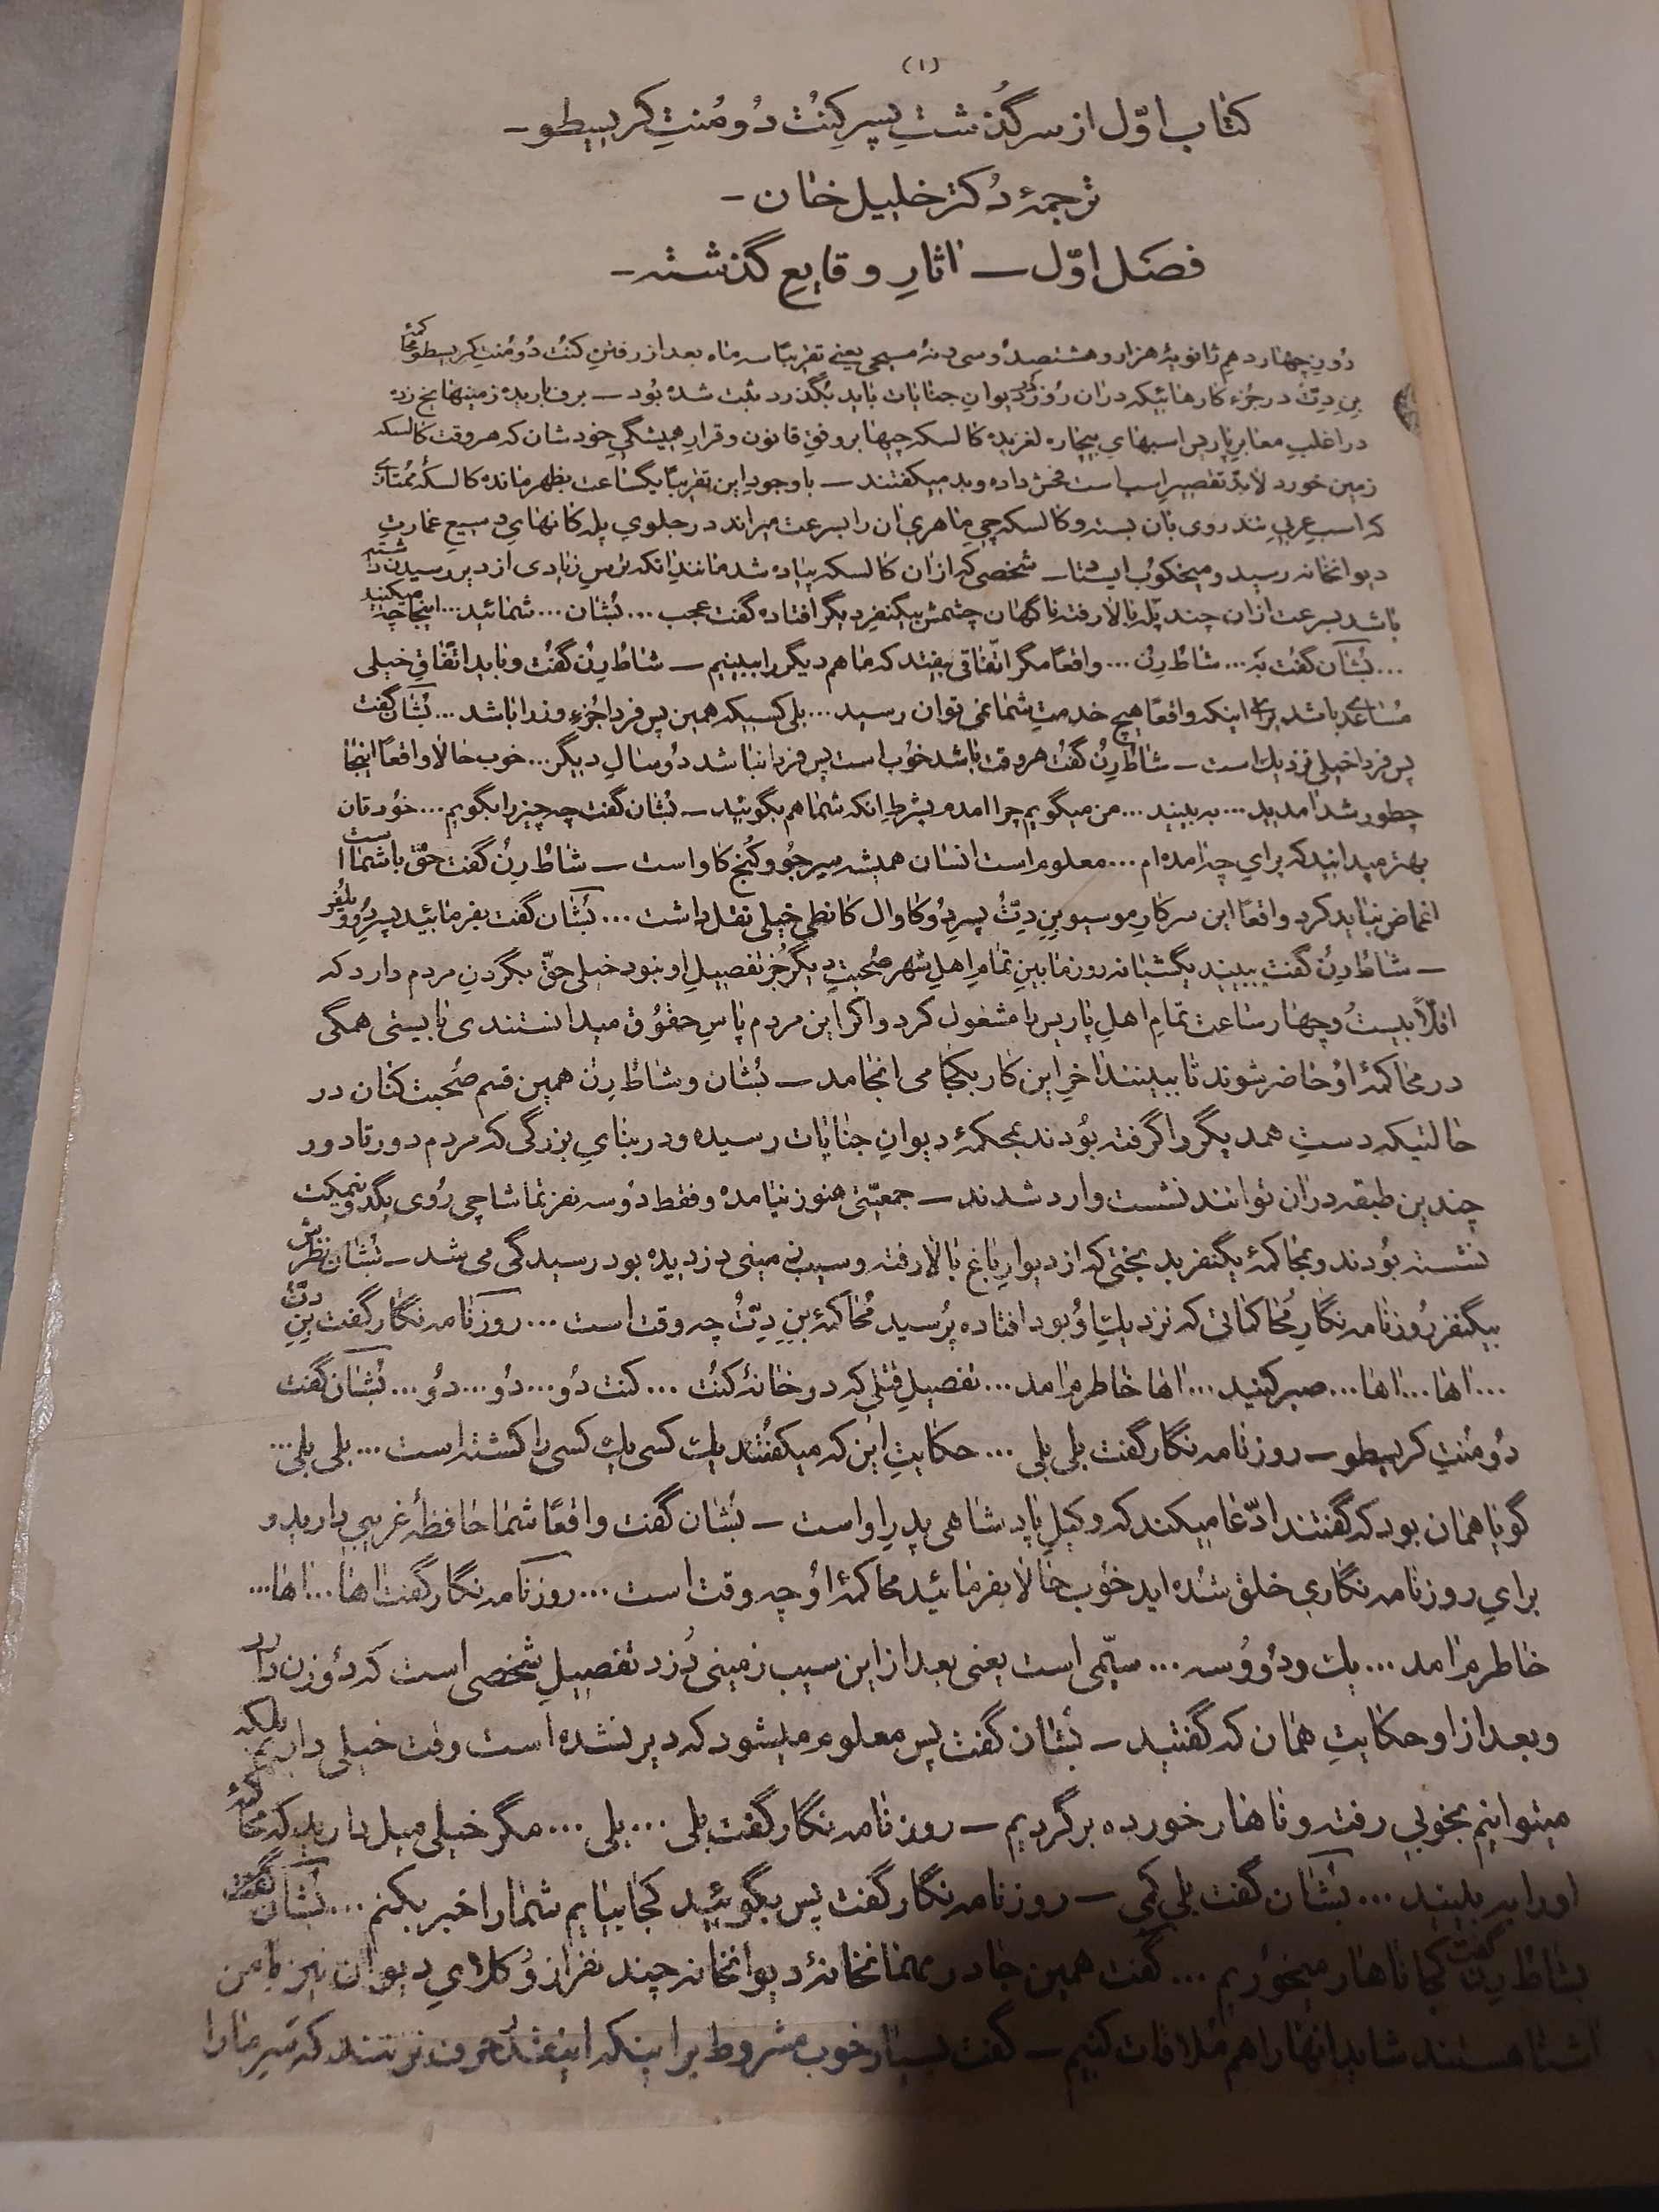 (۱)
کتاب اوّل از سرگذشتِ پسرِ کنُت دُو مُنتِ کریسطو ــ
ترجمهٔ دُکتر خلیل خان ــ
فصل اوّل ــ اثارِ وقایعِ گذشته ــ
رُوزِ چهاردهمِ ژانویهٔ هزار و هشتصد و سی و نهُ مسیحی یعنے تقریبًا سه ماه بعد از رفتنِ کنُت دُو مُنتِ کریسطو محاکمهٔ
بِنِ دِتّ در جُزءِ کارهائیکه دران رُوز در دیوانِ جنایات باید بگذرد ثبت شده بُود ــ برف باریده زمینها یخ زده
در اغلبِ معابرِ پاریس اسبهایِ بیچاره لغزیده کالسکه چیها بر وفقِ قانون و قرارِ همیشگیِ خودشان که هر وقت کالسکه
زمین خورد لابدّ تقصیرِ اسب است فحش داده و بد میگفتند ــ با وجودِ این تقریبًا یکساعت بظهر مانده کالسکهٔ مُمتازے
که اسبِ عربیِ تند روی بان بسته و کالسکه چیِ ماهری ان را بسرعت میراند در جلویِ پله کانهایِ وسیعِ عمارتِ
دیوانخانه رسید و میخکوب ایستاد ــ شخصی که از ان کالسکه پیاده شد مانندِ انکه ترسِ زیادی از دیر رسیدن داشته
باشد بسرعت از ان چند پلّه بالا رفته ناگهان چشمش بیکنفرِ دیگر افتاده گفت عجب ... بُشان ... شمائید ... اینجا چه میکنید
... بُشان گفت به ... شاطُ رِنُ ... واقعًا مگر اتّفاقی بیفتد که ما هم دیگر را ببینیم ــ شاطُ رِنُ گفت و باید اتّفاقِ خیلی
مُساعدے باشد براے اینکه واقعًا هیچ خدمتِ شما نمی توان رسید ... بلی کسیکه همین پس فردا جُزءِ وزرا باشد ... بُشان گفت
پس فردا خیلی نزدیك است ــ شاطُ رِنُ گفت هر وقت باشد خوب است پس فردا نباشد دو سالِ دیگر ... خوب حالا واقعًا اینجا
چطور شد امدید ... به بینید ... من میگویم چرا امده بشرطِ انکه شما هم بگوئید ــ بُشان گفت چه چیز را بگویم ... خودتان
بهتر میدانید که برایِ چه امده ام ... معلوم است انسان همیشه سِر جُو و کُنج کاو است ــ شاطُ رِنُ گفت حقّ با شما است
اغماض نباید کرد واقعًا این سرکارِ موسیو بِنِ دِتّ پسرِ دُوکاوال کانطی خیلی نقل داشت ... بُشان گفت بفرمائید پسرِ دُو ویلفُر
ــ شاطُ رِنُ گفت ببینید یکشبانه روز مابینِ تمامِ اهلِ شهر صُحبتِ دیگر جُز تفصیلِ او نبود خیلی حقّ بگردنِ مردم دارد که
اقلّاً بیست و چهار ساعت تمامِ اهلِ پاریس را مشغول کرد و اگر این مردم پاسِ حقُوق میدانستندی بایستی همگی
در محاکمهٔ اوُ حاضر شوند تا ببینند اخرِ این کار بکجا می انجامد ــ بُشان و شاطُ رِن همین قسم صُحبت کنان در
حالتیکه دستِ همدیگر را گرفته بُودند بمحکمهٔ دیوانِ جنایات رسیده و در بنایِ بزرگی که مردم دور تا دور
چندین طبقه دران توانند نشست وارد شدند ــ جمعیّتی هنوز نیامده و فقط دو سه نفر تماشاچی رُوی یکدو نیمکت
نشسته بُودند و بمحاکمهٔ یکنفر بد بختی که از دیوارِ باغ بالا رفته و سیب زمینی دزدیده بود رسیدگی می شد ــ بُشان نظرش
بیکنفر رُوزنامه نگارِ مُحاکماتی که نزدیكِ اوُ بود افتاده پُرسید مُحاکمهٔ بِنِ دِتّ چه وقت است ... روزنامه نگار گفت بِنِ دِتّ
... اها ... اها ... صبر کنید ... اها خاطرم امد ... تفصیلِ قتلی که در خانهٔ کنُت ... کنت دُو ... دُو ... دُو ... بُشان گفت
دُو مُنتِ کریسطو ــ روزنامه نگار گفت بلی بلی ... حکایتِ این که میگفتند یك کسی یك کسی را کشته است ... بلی بلی ...
گویا همان بود که گفتند ادّعا میکند که وکیلِ پادشاهی پدرِ او است ــ بُشان گفت واقعًا شما حافظهٔ غریبی دارید و
برایِ روزنامه نگاری خلق شُده اید خوب حالا بفرمائید محاکمهٔ اوُ چه وقت است ... روزنامه نگار گفت اها ... اها ...
خاطرم امد ... یك و دُو و سه ... سیّمی است یعنی بعد از این سیب زمینی دُزد تفصیلِ شخصی است که دُو زن دارد
و بعد از او حکایتِ همان که گفتید ــ بُشان گفت پس معلوم میشود که دیر نشده است وقت خیلی داریم بلکه
میتوانیم بخوبی رفته و ناهار خورده برگردیم ــ روزنامه نگار گفت بلی ... بلی ... مگر خیلی میل دارید که محاکمهٔ
اورا به بینید ... بُشان گفت بلی کمی ــ روزنامه نگار گفت پس بگوئید کجا بیایم شمارا خبر بکنم ... بُشان گفت
بشاطُ رِن گفت کجا ناهار میخوریم ... گفت همین جا در مهمانخانهٔ دیوانخانه چند نفر از وُکلایِ دیوان نیز با من
اشنا هستند شاید انها را هم مُلاقات کنیم ــ گفت بسیار خوب مشروط بر اینکه اینقدر حرف نزنند که سَرِ ما را